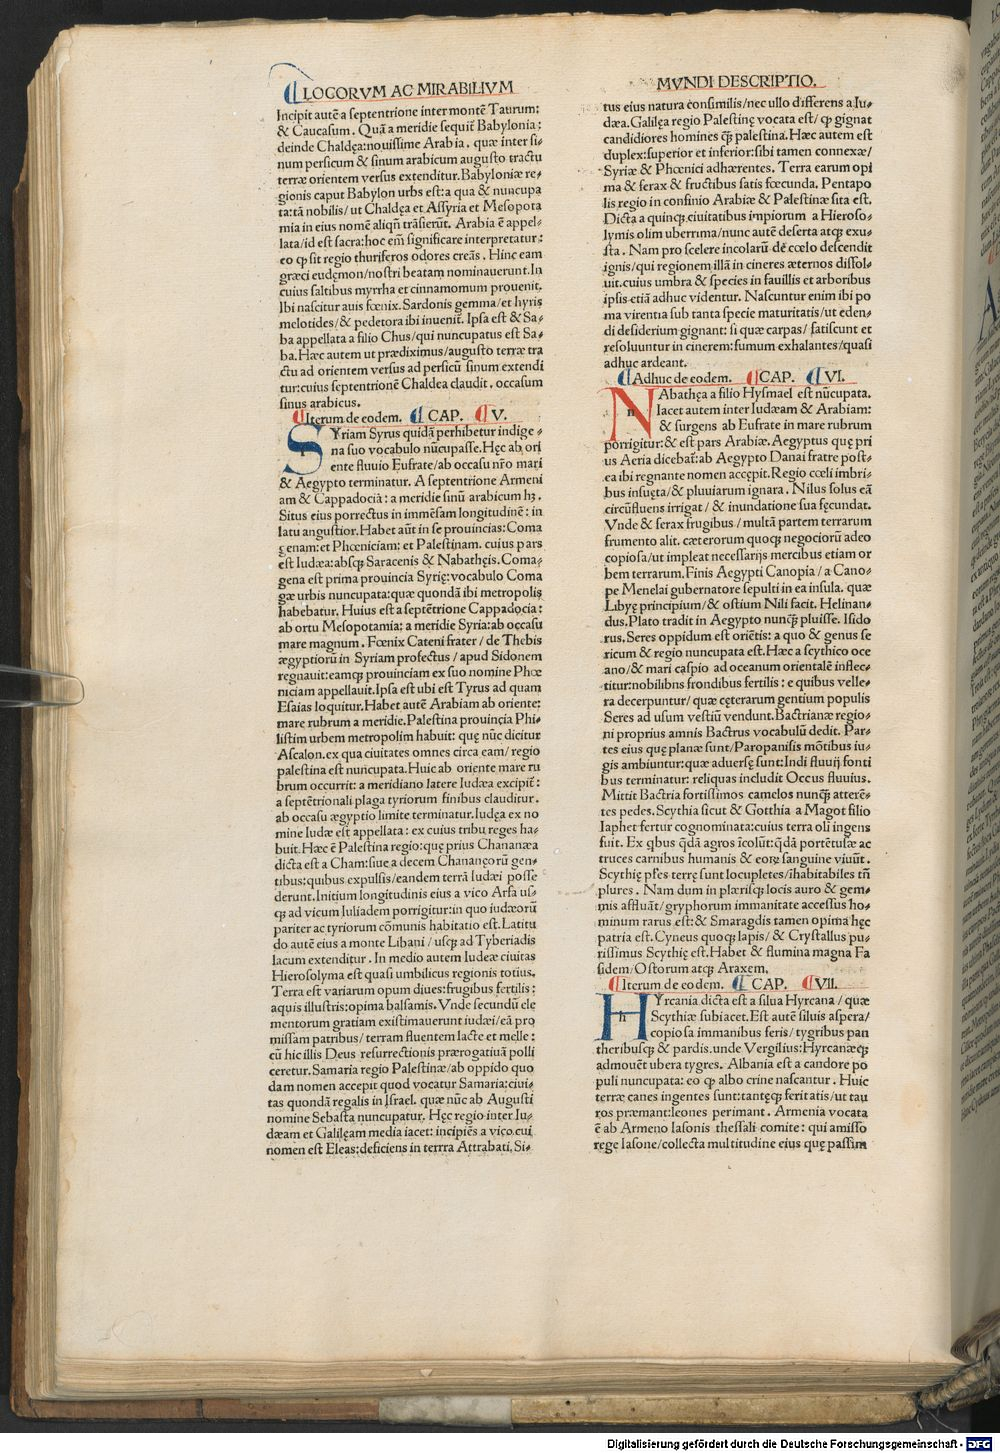 LOCORVM AC MIRABILIVM
Incipit autē a septentrione inter montē Taurum:
& Caucasum. Quā a meridie sequit᷑ Babylonia:
deinde Chaldęa: nouissime Arabia. quæ inter si⸗
num persicum & sinum arabicum augusto tractu
terræ orientem versus extenditur. Babyloniæ re⸗
gionis caput Babylon urbs est: a qua & nuncupa
ta: tā nobilis/ ut Chaldęa et Assyria et Mesopota
mia in eius nomē aliqn̄ trāsierūt. Arabia ē appel⸗
lata/ id est sacra: hoc em̄ significare interpretatur:
eo ꝙ sit regio thuriferos odores creās. Hinc eam
græci eudęmon/ nostri beatam nominauerunt. In
cuius saltibus myrrha et cinnamomum prouenit.
Ibi nascitur auis fœnix. Sardonis gemma/ et hyris
melotides/ & pedetora ibi inuenit᷑. Ipsa est & Sa⸗
ba appellata a filio Chus/ qui nuncupatus est Sa⸗
ba. Hæc autem ut prædiximus/ augusto terræ tra
ctu ad orientem versus ad persicū sinum extendi
tur: cuius septentrionē Chaldea claudit. occasum
sinus arabicus.
Iterum de eodem. CAP. V.
SYriam Syrus quidā perhibetur indige⸗
na suo vocabulo nūcupasse. Hęc ab ori
ente fluuio Eufrate/ ab occasu nr̄o mari
& Aegypto terminatur. A septentrione Armeni
am & Cappadociā: a meridie sinū arabicum hꝫ.
Situs eius porrectus in immēsam longitudinē: in
latu angustior. Habet aūt in se prouincias: Coma
genam: et Phœniciam: et Palestinam. cuius pars
est Iudæa: absqꝫ Saracenis & Nabathęis. Coma⸗
gena est prima prouincia Syrię: vocabulo Coma
gæ urbis nuncupata: quæ quondā ibi metropolis
habebatur. Huius est a septētrione Cappadocia:
ab ortu Mesopotamia: a meridie Syria: ab occasu
mare magnum. Fœnix Cateni frater/ de Thebis
ægyptiorū in Syriam profectus/ apud Sidonem
regnauit: eamqꝫ prouinciam ex suo nomine Phœ
niciam appellauit. Ipsa est ubi est Tyrus ad quam
Esaias loquitur. Habet autē Arabiam ab oriente:
mare rubrum a meridie. Palestina prouincia Phi⸗
listim urbem metropolim habuit: quę nūc dicitur
Ascalon. ex qua ciuitates omnes circa eam/ regio
palestina est nuncupata. Huic ab oriente mare ru
brum occurrit: a meridiano latere Iudæa excipit᷑:
a septētrionali plaga tyriorum finibus clauditur.
ab occasu ægyptio limite terminatur. Iudęa ex no
mine Iudæ est appellata: ex cuius tribu reges ha⸗
buit. Hæc ē Palestina regio: quę prius Chananæa
dicta est a Cham: siue a decem Chananęorū gen⸗
tibus: quibus expulsis/ eandem terrā Iudæi posse
derunt. Initium longitudinis eius a vico Arfa us⸗
qꝫ ad vicum Iuliadem porrigitur: in quo iudæorū
pariter ac tyriorum cōmunis habitatio est. Latitu
do autē eius a monte Libani/ usqꝫ ad Tyberiadis
lacum extenditur. In medio autem Iudeæ ciuitas
Hierosolyma est quasi umbilicus regionis totius.
Terra est variarum opum diues: frugibus fertilis:
aquis illustris: opima balsamis. Vnde secundū ele
mentorum gratiam existimauerunt iudæi/ eā pro
missam patribus/ terram fluentem lacte et melle:
cū hic illis Deus resurrectionis prærogatiuā polli
ceretur. Samaria regio Palestinæ/ ab oppido quo
dam nomen accepit quod vocatur Samaria: ciui⸗
tas quondā regalis in Israel. quæ nūc ab Augusti
nomine Sebasta nuncupatur. Hęc regio inter Iu⸗
dæam et Galilęam media iacet: incipiēs a vico. cui
nomen est Eleas: deficiens in terrra Attrabati. Si⸗
MVNDI DESCRIPTIO.
tus eius natura consimilis/ nec ullo differens a Iu⸗
dæa. Galilęa regio Palestinę vocata est/ ꝙ gignat
candidiores homines qꝫ̄ palestina. Hæc autem est
duplex: superior et inferior: sibi tamen connexæ/
Syriæ & Phœnici adhærentes. Terra earum opi
ma & ferax & fructibus satis fœcunda. Pentapo
lis regio in confinio Arabiæ & Palestinæ sita est.
Dicta a quinqꝫ ciuitatibus impiorum a Hieroso⸗
lymis olim uberrima/ nunc autē deserta atqꝫ exu⸗
sta. Nam pro scelere incolarū de cœlo descendit
ignis/ qui regionem illā in cineres æternos dissol⸗
uit. cuius umbra & species in fauillis et arboribus
ipsis etiā adhuc videntur. Nascuntur enim ibi po
ma virentia sub tanta specie maturitatis/ ut eden⸗
di desiderium gignant: si quæ carpas/ fatiscunt et
resoluuntur in cinerem: fumum exhalantes/ quasi
adhuc ardeant.
Adhuc de eodem. CAP. VI.
NAbathęa a filio Hysmael est nūcupata.
Iacet autem inter Iudæam & Arabiam:
& surgens ab Eufrate in mare rubrum
porrigitur: & est pars Arabiæ. Aegyptus quę pri
us Aeria dicebat᷑: ab Aegypto Danai fratre post⸗
ea ibi regnante nomen accępit. Regio cœli imbri⸗
bus insuęta/ & pluuiarum ignara. Nilus solus eā
circūfluens irrigat/ & inundatione sua fęcundat.
Vnde & ferax frugibus/ multā partem terrarum
frumento alit. cæterorum quoqꝫ negociorū adeo
copiosa/ ut impleat necessarijs mercibus etiam or
bem terrarum. Finis Aegypti Canopia/ a Cano⸗
pe Menelai gubernatore sepulti in ea insula. quæ
Libyę principium/ & ostium Nili facit. Helinan⸗
dus. Plato tradit in Aegypto nunqꝫ̄ pluisse. Isido
rus. Seres oppidum est oriētis: a quo & genus se
ricum & regio nuncupata est. Hæc a scythico oce
ano/ & mari caspio ad oceanum orientalē inflec⸗
titur: nobilibns frondibus fertilis: e quibus velle⸗
ra decerpuntur/ quæ cęterarum gentium populis
Seres ad usum vestiū vendunt. Bactrianæ regio⸗
ni proprius amnis Bactrus vocabulū dedit. Par⸗
tes eius quę planæ sunt/ Paropanisis mōtibus iu⸗
gis ambiuntur: quæ aduersę sunt: Indi fluuij fonti
bus terminatur: reliquas includit Occus fluuius.
Mittit Bactria fortissimos camelos nunqꝫ̄ atterē⸗
tes pedes. Scythia sicut & Gotthia a Magot filio
Iaphet fertur cognominata: cuius terra oli ingens
fuit. Ex qbus q̄dā agros īcolūt: q̄dā portētuſæ ac
truces carnibus humanis & eoꝝ sanguine viuūt.
Scythię pl̄es terrę sunt locupletes/ īhabitabiles tn̄
plures. Nam dum in plærisqꝫ locis auro & gem⸗
mis affluāt/ gryphorum immanitate accessus ho⸗
minum rarus est: & Smaragdis tamen opima hęc
patria est. Cyneus quoqꝫ lapis/ & Crystallus pu⸗
rissimus Scythię est. Habet & flumina magna Fa
sidem/ Ostorum atqꝫ Araxem.
Iterum de eodem. CAP. VII.
HYrcania dicta est a silua Hyrcana/ quæ
Scythiæ subiacet. Est autē siluis aspera/
copiosa immanibus feris/ tygribus pan
theribusqꝫ & pardis. unde Vergilius: Hyrcanæqꝫ
admouēt ubera tygres. Albania est a candore po
puli nuncupata: eo ꝙ albo crine nascantur. Huic
terræ canes ingentes sunt: tantęqꝫ feritatis/ ut tau
ros præmant: leones perimant. Armenia vocata
ē ab Armeno Iasonis thessali comite: qui amisso
rege Iasone/ collecta multitudine eius quę passim
Digitalisierung gefördert durch die Deutsche Forschungsgemeinschaft - DFG